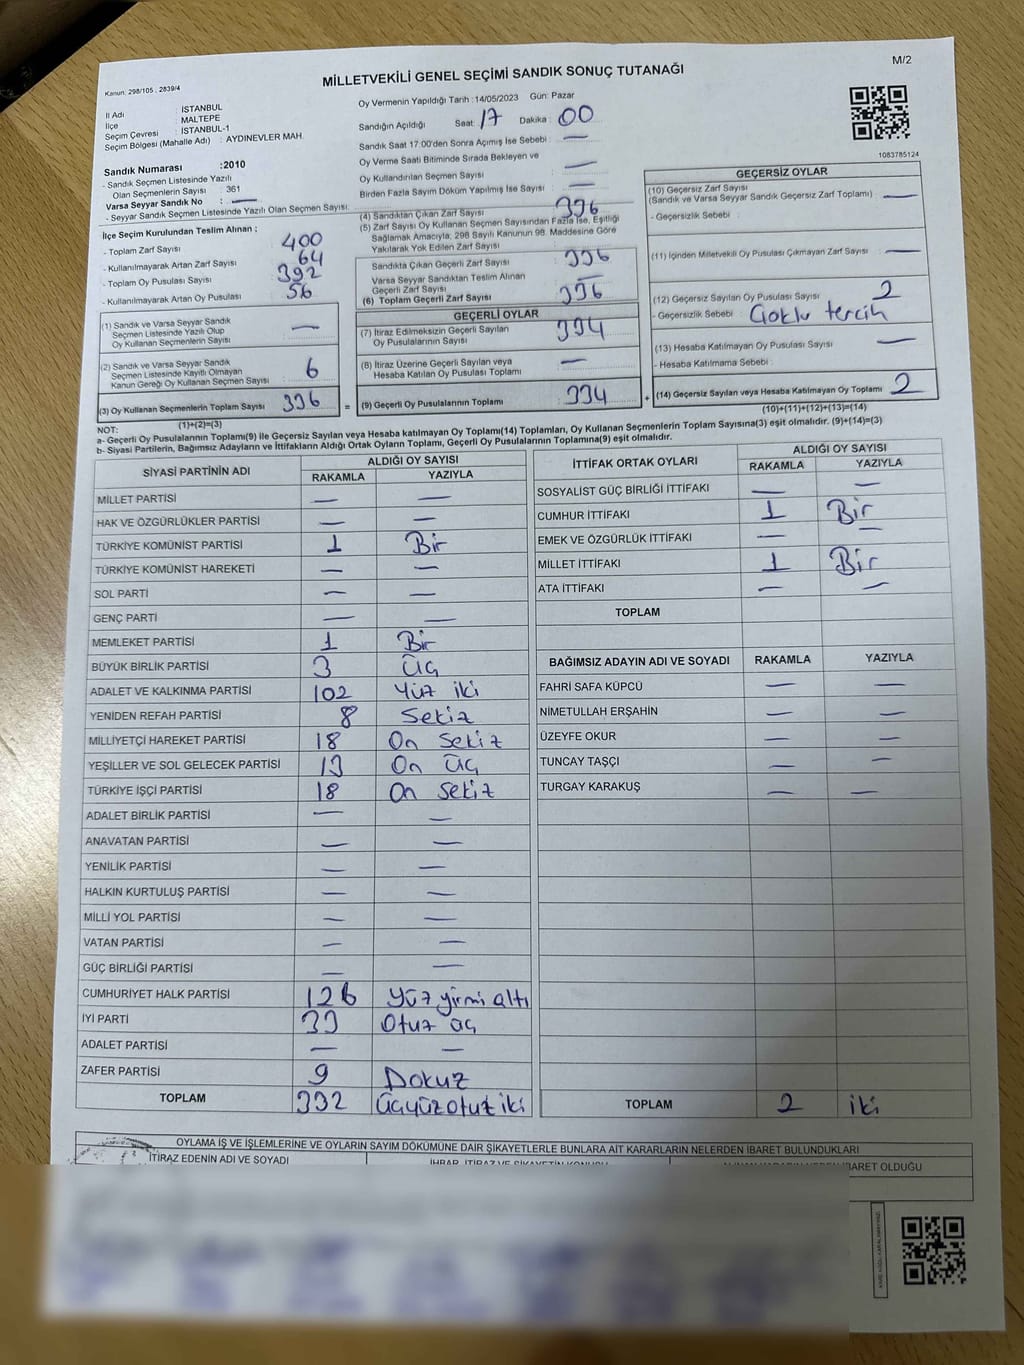 M/2
MİLLETVEKİLİ GENEL SEÇİMİ SANDIK SONUÇ TUTANAĞI
Kanun: 298/105 , 2839/4
İl Adı : İSTANBUL
İlçe : MALTEPE
Seçim Çevresi : İSTANBUL-1
Seçim Bölgesi (Mahalle Adı) : AYDINEVLER MAH.
Sandık Numarası :2010
- Sandık Seçmen Listesinde Yazılı
Olan Seçmenlerin Sayısı : 361
Varsa Seyyar Sandık No : —
- Seyyar Sandık Seçmen Listesinde Yazılı Olan Seçmen Sayısı:
İlçe Seçim Kurulundan Teslim Alınan ;
- Toplam Zarf Sayısı : 400
- Kullanılmayarak Artan Zarf Sayısı : 64
- Toplam Oy Pusulası Sayısı : 392
- Kullanılmayarak Artan Oy Pusulası : 56
(1) Sandık ve Varsa Seyyar Sandık
Seçmen Listesinde Yazılı Olup
Oy Kullanan Seçmenlerin Sayısı : —
(2) Sandık ve Varsa Seyyar Sandık
Seçmen Listesinde Kayıtlı Olmayan
Kanun Gereği Oy Kullanan Seçmen Sayısı : 6
(3) Oy Kullanan Seçmenlerin Toplam Sayısı : 336
(1)+(2)=(3)
Oy Vermenin Yapıldığı Tarih :14/05/2023 Gün: Pazar
Sandığın Açıldığı Saat : 17 Dakika : 00
Sandık Saat 17:00'den Sonra Açımış İse Sebebi : —
Oy Verme Saati Bitiminde Sırada Bekleyen ve
Oy Kullandırılan Seçmen Sayısı : —
Birden Fazla Sayım Döküm Yapılmış İse Sayısı : —
(4) Sandıktan Çıkan Zarf Sayısı : 336
(5) Zarf Sayısı Oy Kullanan Seçmen Sayısından Fazla İse, Eşitliği
Sağlamak Amacıyla, 298 Sayılı Kanunun 98. Maddesine Göre
Yakılarak Yok Edilen Zarf Sayısı :
Sandıkta Çıkan Geçerli Zarf Sayısı : 336
Varsa Seyyar Sandıktan Teslim Alınan
Geçerli Zarf Sayısı : —
(6) Toplam Geçerli Zarf Sayısı : 336
GEÇERLİ OYLAR
(7) İtiraz Edilmeksizin Geçerli Sayılan
Oy Pusulalarının Sayısı : 334
(8) İtiraz Üzerine Geçerli Sayılan veya
Hesaba Katılan Oy Pusulası Toplamı : —
= (9) Geçerli Oy Pusulalarının Toplamı : 334 +
1083785124
GEÇERSİZ OYLAR
(10) Geçersiz Zarf Sayısı
(Sandık ve Varsa Seyyar Sandık Geçersiz Zarf Toplamı) : —
- Geçersizlik Sebebi :
(11) İçinden Milletvekili Oy Pusulası Çıkmayan Zarf Sayısı : —
(12) Geçersiz Sayılan Oy Pusulası Sayısı : 2
- Geçersizlik Sebebi : Çoklu tercih
(13) Hesaba Katılmayan Oy Pusulası Sayısı : —
- Hesaba Katılmama Sebebi :
(14) Geçersiz Sayılan veya Hesaba Katılmayan Oy Toplamı : 2
(10)+(11)+(12)+(13)=(14)
NOT:
a- Geçerli Oy Pusulalarının Toplamı(9) ile Geçersiz Sayılan veya Hesaba katılmayan Oy Toplamı(14) Toplamları, Oy Kullanan Seçmenlerin Toplam Sayısına(3) eşit olmalıdır. (9)+(14)=(3)
b- Siyasi Partilerin, Bağımsız Adayların ve İttifakların Aldığı Ortak Oyların Toplamı, Geçerli Oy Pusulalarının Toplamına(9) eşit olmalıdır.
SİYASİ PARTİNİN ADI ALDIĞI OY SAYISI
RAKAMLA YAZIYLA
MİLLET PARTİSİ — —
HAK VE ÖZGÜRLÜKLER PARTİSİ — —
TÜRKİYE KOMÜNİST PARTİSİ 1 Bir
TÜRKİYE KOMÜNİST HAREKETİ — —
SOL PARTİ — —
GENÇ PARTİ — —
MEMLEKET PARTİSİ 1 Bir
BÜYÜK BİRLİK PARTİSİ 3 Üç
ADALET VE KALKINMA PARTİSİ 102 Yüz iki
YENİDEN REFAH PARTİSİ 8 Sekiz
MİLLİYETÇİ HAREKET PARTİSİ 18 On Sekiz
YEŞİLLER VE SOL GELECEK PARTİSİ 13 On Üç
TÜRKİYE İŞÇİ PARTİSİ 18 On Sekiz
ADALET BİRLİK PARTİSİ — —
ANAVATAN PARTİSİ — —
YENİLİK PARTİSİ — —
HALKIN KURTULUŞ PARTİSİ — —
MİLLİ YOL PARTİSİ — —
VATAN PARTİSİ — —
GÜÇ BİRLİĞİ PARTİSİ — —
CUMHURİYET HALK PARTİSİ 126 Yüz yirmi altı
İYİ PARTİ 33 Otuz üç
ADALET PARTİSİ — —
ZAFER PARTİSİ 9 Dokuz
TOPLAM 332 Üçyüzotuz iki
İTTİFAK ORTAK OYLARI ALDIĞI OY SAYISI
RAKAMLA YAZIYLA
SOSYALİST GÜÇ BİRLİĞİ İTTİFAKI — —
CUMHUR İTTİFAKI 1 Bir
EMEK VE ÖZGÜRLÜK İTTİFAKI — —
MİLLET İTTİFAKI 1 Bir
ATA İTTİFAKI — —
TOPLAM
BAĞIMSIZ ADAYIN ADI VE SOYADI RAKAMLA YAZIYLA
FAHRİ SAFA KÜPCÜ — —
NİMETULLAH ERŞAHİN — —
ÜZEYFE OKUR — —
TUNCAY TAŞÇI — —
TURGAY KARAKUŞ — —
TOPLAM 2 iki
OYLAMA İŞ VE İŞLEMLERİNE VE OYLARIN SAYIM DÖKÜMÜNE DAİR ŞİKAYETLERLE BUNLARA AİT KARARLARIN NELERDEN İBARET BULUNDUKLARI
İTİRAZ EDENİN ADI VE SOYADI
İBARET OLDUĞU